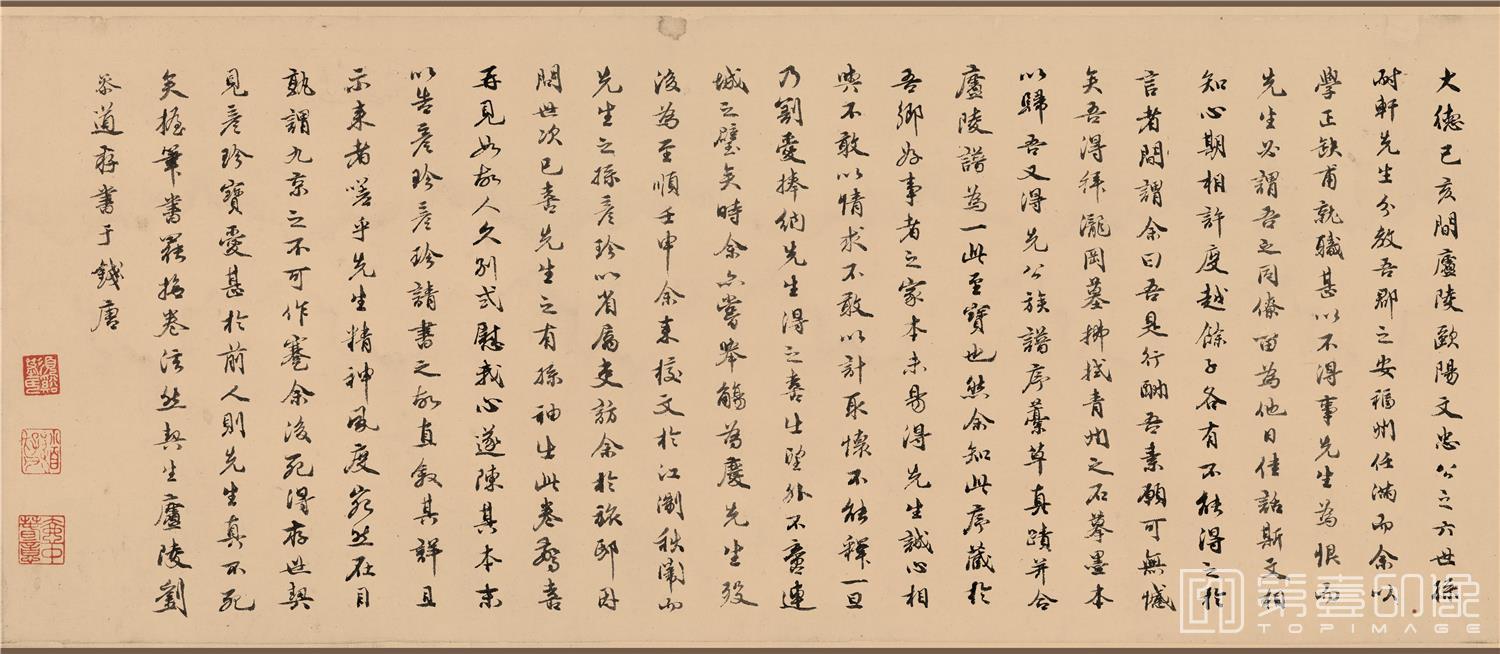 大德己亥間廬陵歐陽文忠公之六世孫
耐軒先生分教吾郡之安福州任滿而余以
學正缺甫就職甚以不得事先生為恨而
先生必謂吾之同僚留為他日佳話斯文相
知心期相許度越餘子各有不能得之於
言者間謂余曰吾是行酬吾素願可無憾
矣吾得拜瀧岡墓拂拭青州之石摹墨本
以歸吾又得先公族譜序藁草真蹟并合
廬陵譜為一此至寶也然余知此序藏於
吾鄉好事者之家本未易得先生誠心相
與不敢以情求不敢以計取懷不能釋一旦
乃割愛捧納先生得之喜出望外不啻連
城之璧矣時余亦嘗舉觴為慶先生歿
後為至順壬申余來校文於江浙秩闈而
先生之孫彥珍以省屬吏訪余於旅邸因
問世次已喜先生之有孫袖出此卷驚喜
再見如故人久別式慰我心遂陳其本末
以告彥珍彥珍請書之故直敘其詳且
示來者嗟乎先生精神風度宛然在目
孰謂九京之不可作蹇余後死得存世契
見彥珍寶愛甚於前人則先生真不死
矣握筆書罷掩卷泫然契生廬陵劉
參道存書于錢唐
第壹印像
TOPIMAGE